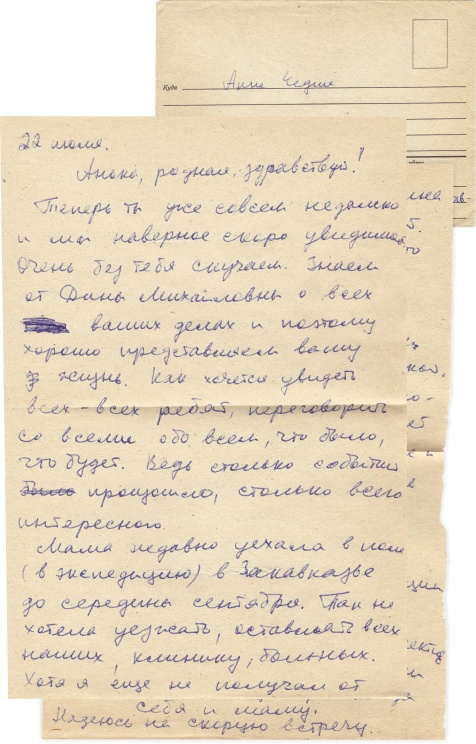 Куда Анни
22 июля.
родная, здравствуй!
Теперь ты уже совсем недалеко
и мы наверное скоро увидимся.
Очень без тебя скучаем. Знаем
от Дины Михайловны о всех
ваших делах и поэтому
хорошо представляем вашу
жизнь. Как хочется увидеть
всех-всех ребят, переговорить
со всеми обо всем, что было,
что будет. Ведь столько событий
было произошло, столько всего
интересного.
Мама недавно уехала в поле
(в экспедицию) в Закавказье
до середины сентября. Так не
хотела уезжать, оставлять всех
наших, клинику, больных.
Хотя я еще не получал от
себя и маму.
Надеюсь на скорую встречу.